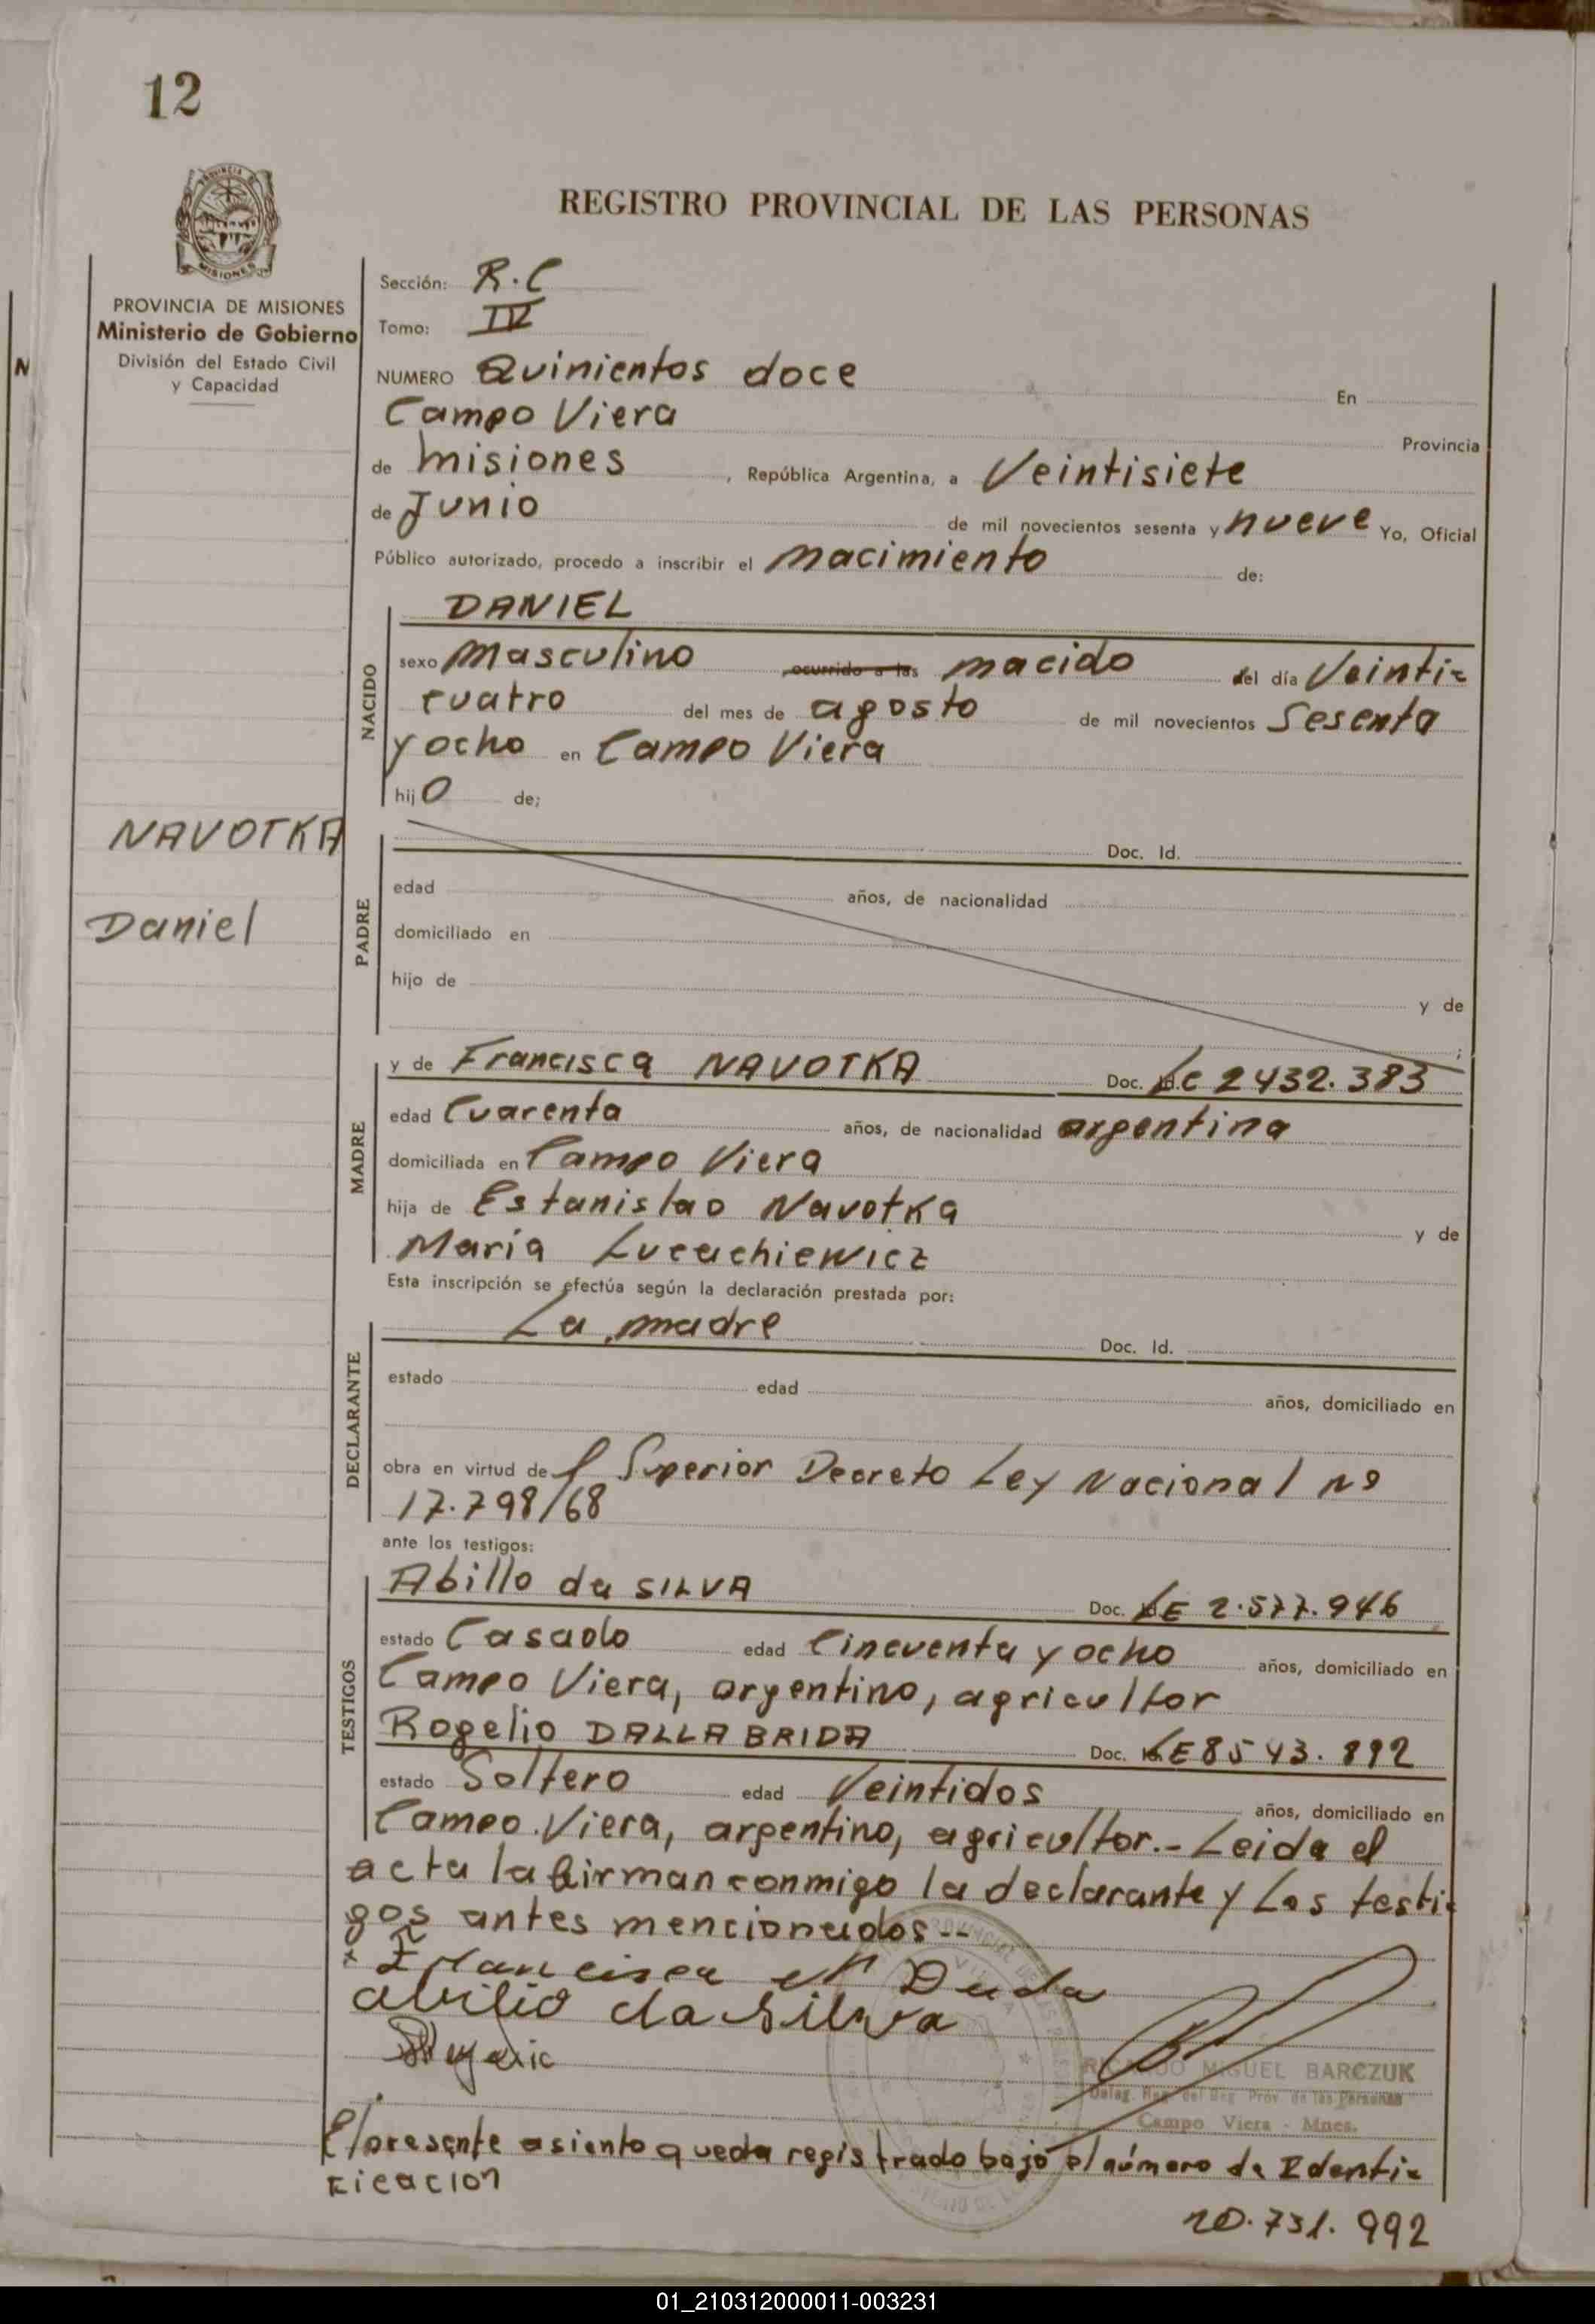 12
REGISTRO PROVINCIAL DE LAS PERSONAS
MISIONES
PROVINCIA DE MISIONES
Ministerio de Gobierno
División del Estado Civil
y Capacidad
Sección: R.C
Tomo: IV
NUMERO Quinientos doce En
Campo Viera Provincia
de Misiones, República Argentina, a Veintisiete
de Junio de mil novecientos sesenta y nueve Yo, Oficial
Público autorizado, procedo a inscribir el nacimiento de:
NACIDO
DANIEL
sexo Masculino ocurrido a las nacido del día Veinti=
cuatro del mes de agosto de mil novecientos Sesenta
y ocho en Campo Viera
hijo de;
NAVOTKA
Daniel
PADRE
Doc. Id.
edad años, de nacionalidad
domiciliado en
hijo de y de
;
MADRE
y de Francisca NAVOTKA Doc. LC 2432.383
edad Cuarenta años, de nacionalidad argentina
domiciliada en Campo Viera
hija de Estanislao Navotka y de
María Lucachiewicz
Esta inscripción se efectúa según la declaración prestada por:
DECLARANTE
La madre Doc. Id.
estado edad años, domiciliado en
obra en virtud del Superior Decreto Ley Nacional nº
17.798/68
ante los testigos:
TESTIGOS
Abillo da SILVA Doc. LE 2.577.946
estado Casado edad Cincuenta y ocho años, domiciliado en
Campo Viera, argentino, agricultor
Rogelio DALLA BRIDA Doc. LE 8543.892
estado Soltero edad Veintidos años, domiciliado en
Campo Viera, argentino, agricultor.- Leida el
acta la firman conmigo la declarante y Los testi=
gos antes mencionados--
Francisca N Duda
abilio da Silva
RICARDO MIGUEL BARCZUK
Deleg. Reg. del Reg. Prov. de las Personas
Campo Viera - Mnes.
El presente asiento queda registrado bajo el número de Identi=
ficacion
20.731.992
01_210312000011-003231